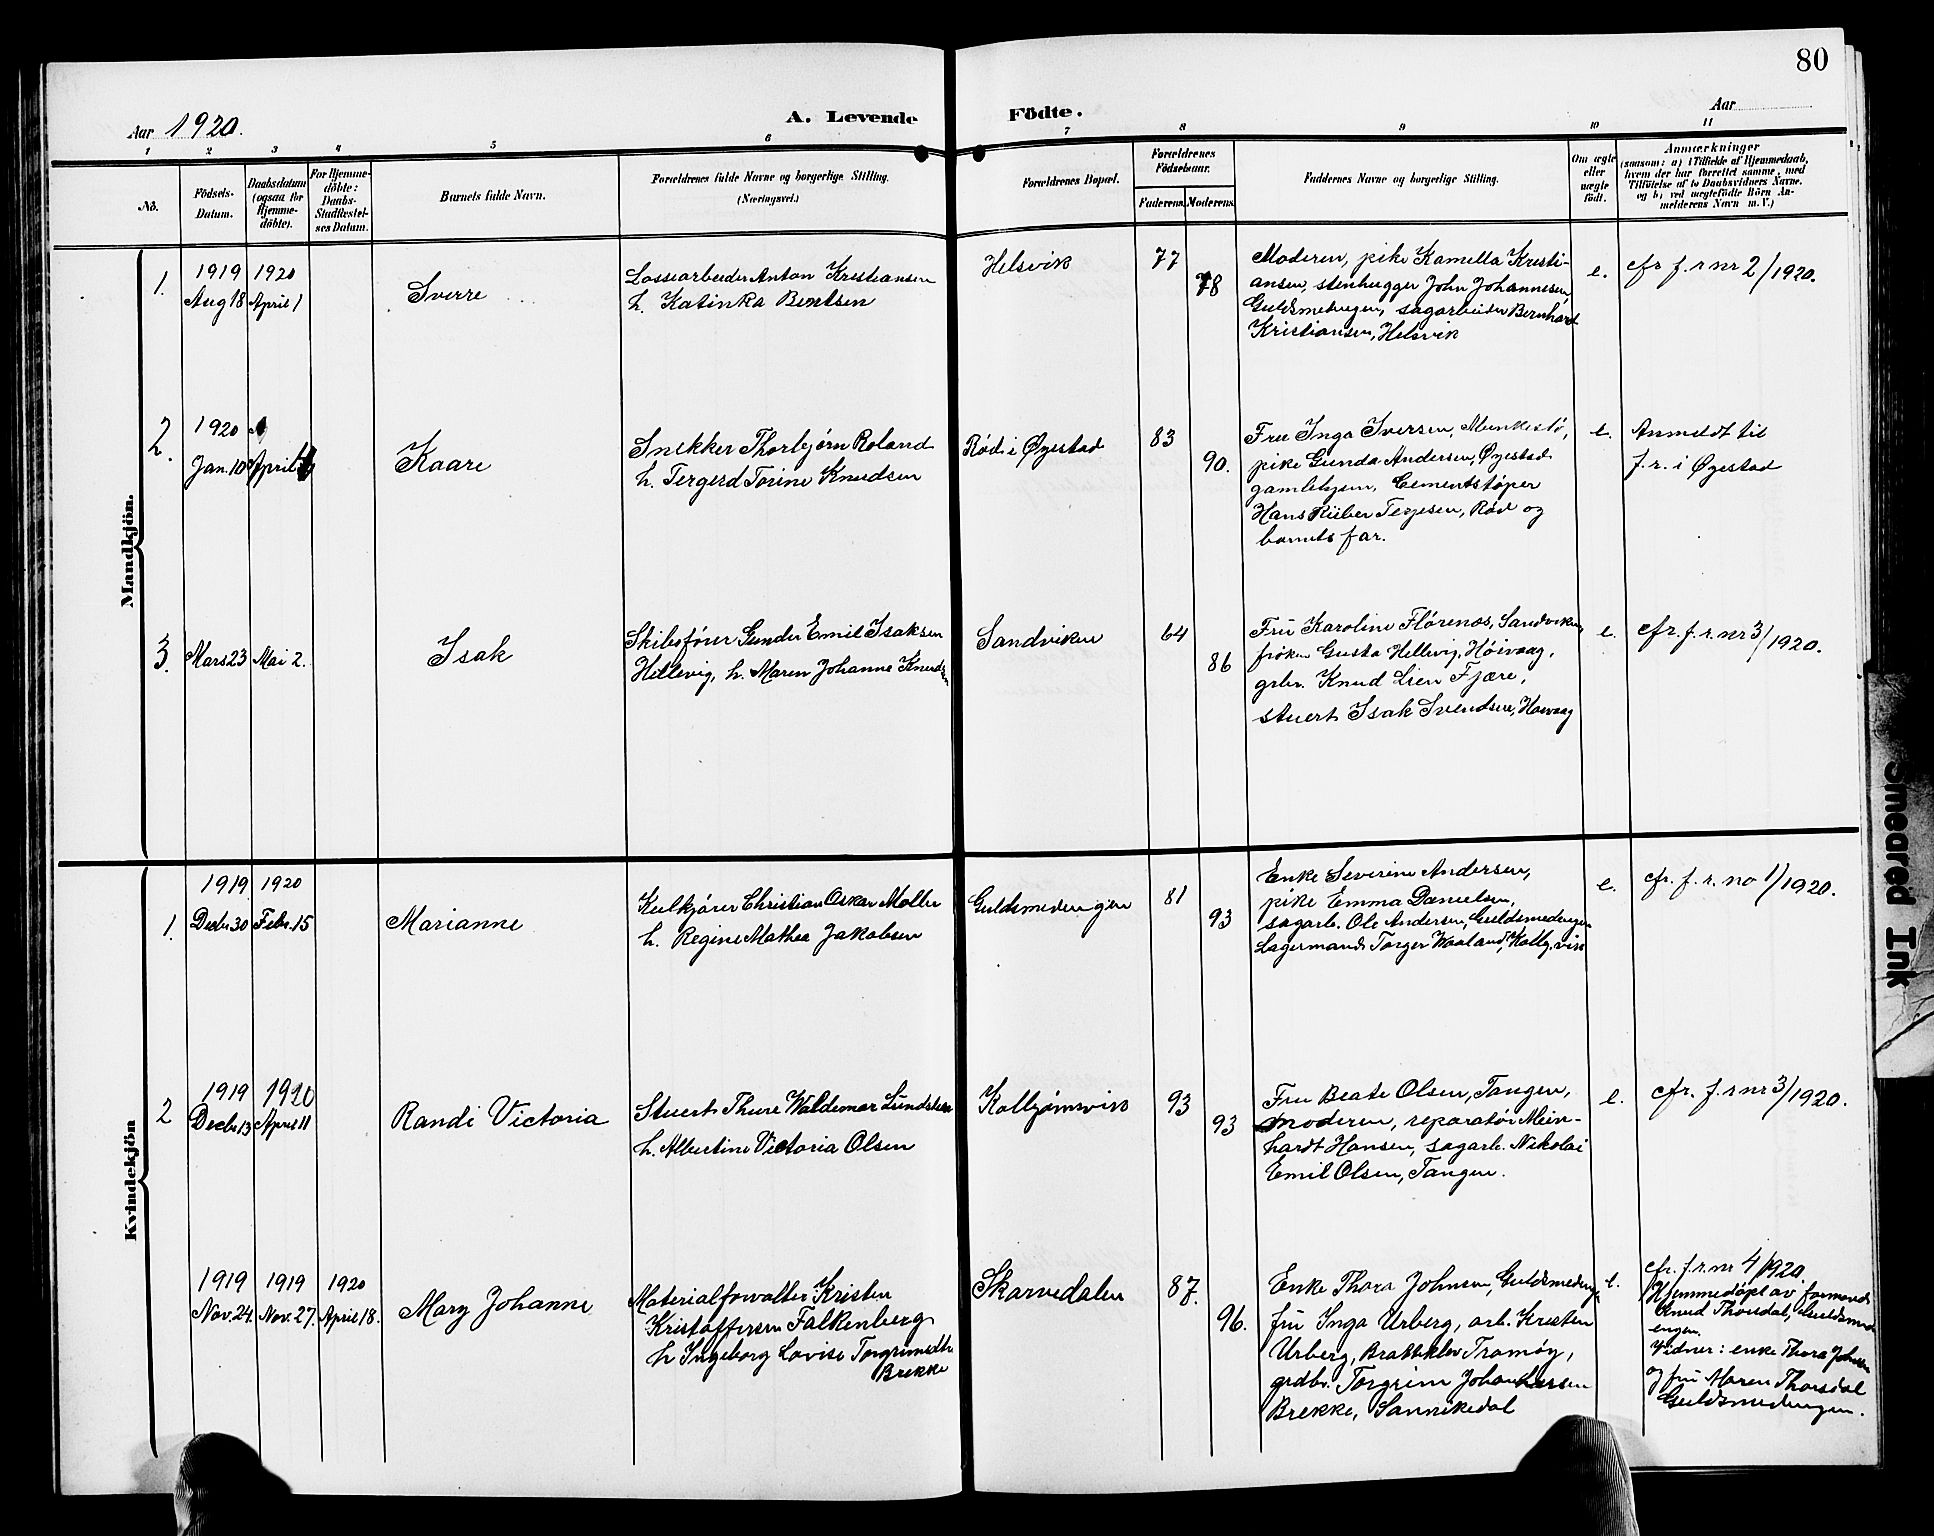 80
Aar 1920.
A. Levende
Födte.
Aar
1
2
3
4
5
6
7
8
9
10
11
No.
Födsels-
Datum.
Daabsdatum
(ogsaa for
Hjemme-
döbte).
For Hjemme-
döbte:
Daabs-
Stadfæstel-
ses Datum.
Barnets fulde Navn.
Forældrenes fulde Navne og borgerlige Stilling.
(Næringsvei.)
Forældrenes Bopæl.
Forældrenes
Födselsaar.
Faderens.
Moderens.
Faddernes Navne og borgerlige Stilling.
Om ægte
eller
uægte
födt.
Anmærkninger
(saasom: a) i Tilfælde af Hjemmedaab,
hvem der har forrettet samme, med
Tilföielse af to Daabsvidners Navne.
og b) ved uægtefödte Börn An-
melderens Navn m. V.)
Mandkjön.
1.
1919
Aug 18
1920
April 1
Sverre
Lossearbeider Anton Kristiansen
h. Katinka Bentsen
Helsvik
77
78
Moderen, pike Kamella Kristi-
ansen, stenhugger John Johannesen
Guldsmedengen, sagarbeider Bernhard
Kristiansen, Helsvik
e.
cfr f. r nr 2/1920.
2.
1920
Jan. 10
April
Kaare
Snekker Thorbjørn Roland
h. Tergerd Torine Knudsen
Rød i Øyestad
83
90.
Fru Inga Iversen, Munkestø,
pike Gunda Andersen, Øyestad
gamlehjem, Cementstøper
Hans Riiber Terjesen, Rød og
barnets far.
e.
Anmeldt til
f. r. i Øyestad
3.
Mars 23
Mai 2.
Isak
Skibsfører Gunder Emil Isaksen
Hellevig, h. Maren Johanne Knudsen
Sandviken
64
86
Fru Karoline Flørenæs, Sandviken
frøken Gusta Hellevig, Høivaag,
grbr. Knud Lien Fjære,
stuert Isak Svendsen, Høivaag
e.
cfr. f. r. nr 3/1920.
Kvindekjön
1.
1919
Decbr 30
1920
Febr. 15
Marianne
Kulkjører Christian Oskar Møller
h. Regine Mathea Jakobsen
Guldsmedengen
81
93
Enke Severine Andersen,
pike Emma Danielsen,
sagarb. Ole Andersen, Guldsmedengen
Lagermand Torger Waaland, Kolbj.vik
e.
cfr. f. r. no 1/1920.
2
1919
Decbr 13
1920
April 11
Randi Victoria
Stuert Thure Waldemar Lundsteen
h. Albertine Victoria Olsen
Kolbjørnsvik
93
93
Fru Beate Olsen, Tangen,
moderen, reparatør Mein-
hardt Hansen, sagarb. Nikolai
Emil Olsen, Tangen.
e.
cfr. f. r nr 3/1920.
1919
Nov. 24.
1919
Nov. 27.
1920
April 18.
Mary Johanne
Materialforvalter Kristen
Kristoffersen Falkenberg
h Ingeborg Lovise Torgrimsdtr
Brekke
Skarvedalen
87.
96.
Enke Thora Johnsen, Guldsmedeng.
fru Inga Urberg, arb. Kristen
Urberg, Brattekler Tromøy,
grdbr. Torgrim Johannessen
Brekke, Sannikedal
e.
cfr. f. r. nr 4/1920.
Hjemmedøpt av formand
Knud Thorsdal, Guldsmed
engen.
Vidner: enke Thora Johnsen
og fru Maren Thorsdal
Guldsmedengen.
Smeared Ink